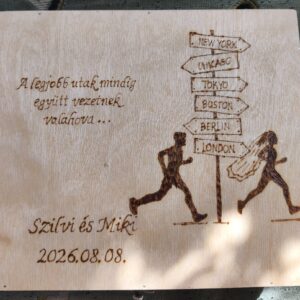 NEW YORK
CHICAGO
TOKYO
BOSTON
BERLIN
LONDON
A legjobb utak mindig
együtt vezetnek
valahova...
Szilvi és Miki
2026.08.08.